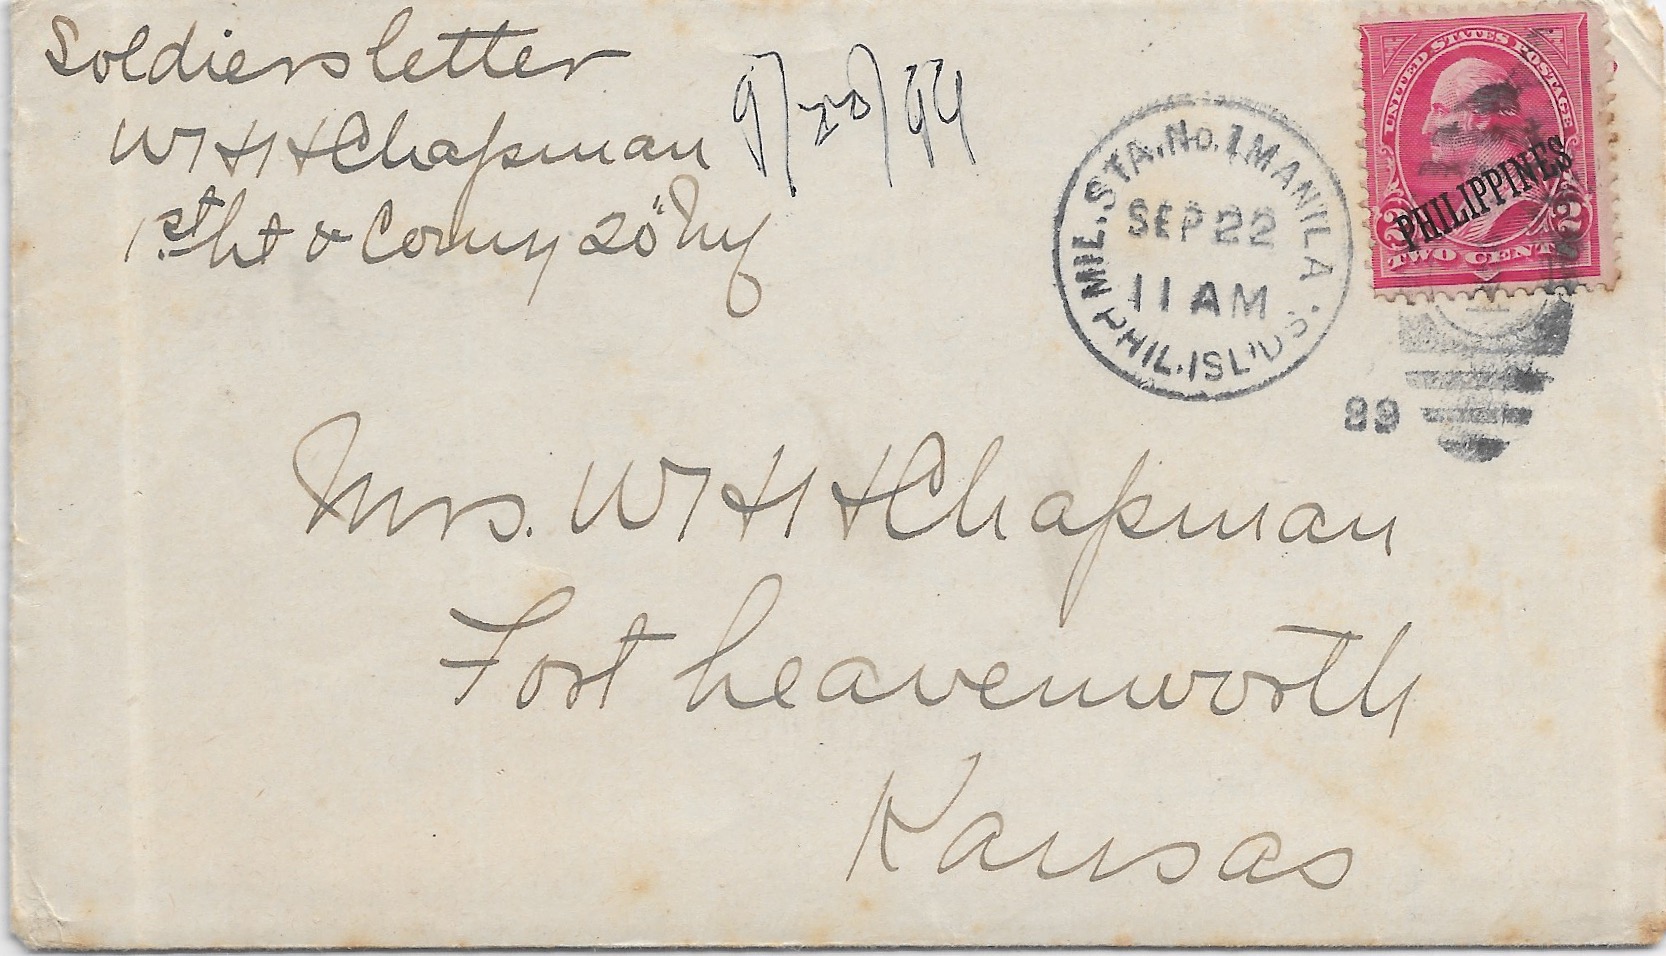 Soldiers letter
W H H Chapman
1st Lt & Comy 20" Inf
9/20/99
MIL. STA. No. 1 MANILA.
SEP 22
11 AM
PHIL. ISL'DS.
99
UNITED STATES POSTAGE
PHILIPPINES
2 2
TWO CENTS
Mrs. W H H Chapman
Fort Leavenworth
Kansas